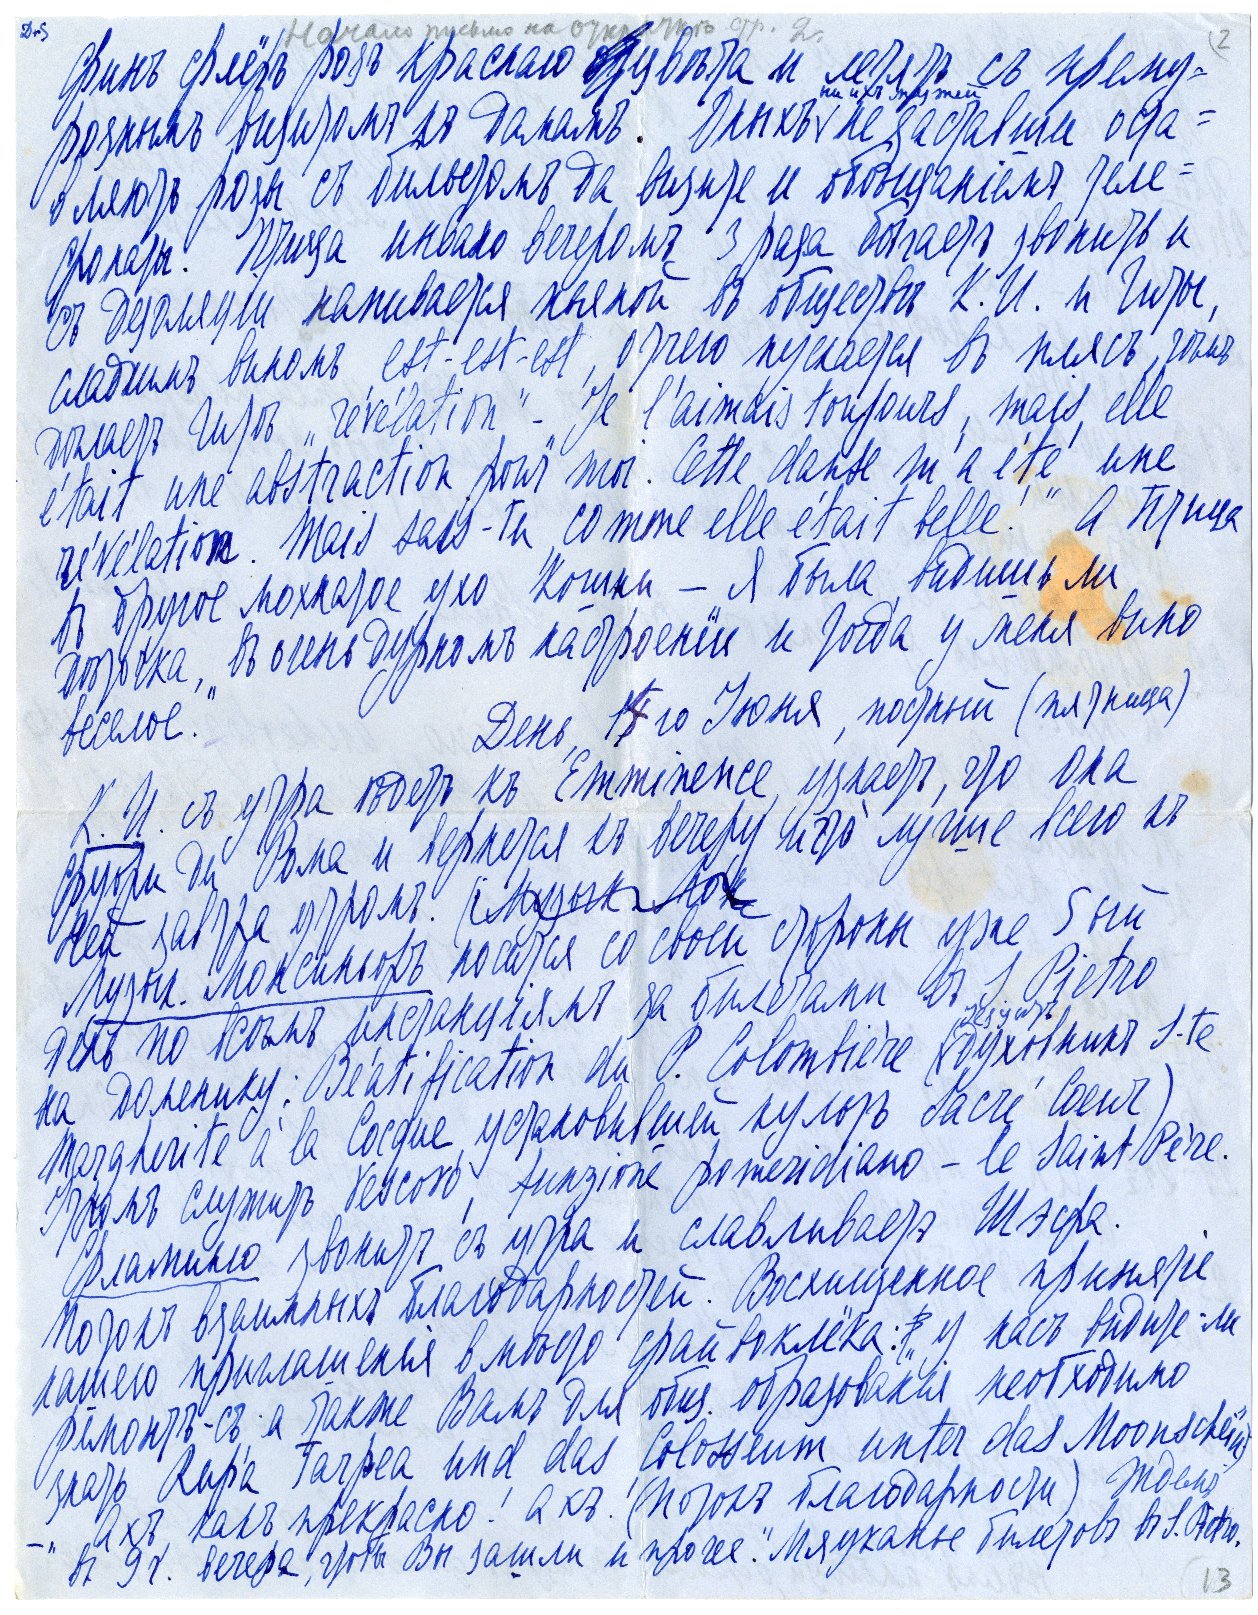 D-S
Начало письма на открыткѣ стр. 2.
(2
Финъ флёръ розъ краснаго цвѣта и летятъ съ прему=
дрымъ визитомъ къ дамамъ. Иныхъ не заставши оста=
ни ихъ мужей
вляютъ розы съ билетомъ да визите и обѣщаніемъ теле=
фонаты. Птица инвано вечеромъ 3 раза бѣгаетъ звонить и
съ напивается пьяной въ обществѣ К.И. и Гиты,
сладкимъ виномъ est-est-est, отчего пускается въ плясъ, чѣмъ
дѣлаетъ Гитѣ „révélation" – „Je l'aimais toujours, mais elle
était une abstraction pour moi. Cette danse m'a été une
révélation. Mais sais-tu comme elle était belle!" А Птица
въ другое мохнатое ухо Кошки – „Я была, видишь ли
дѣточка, въ очень дурномъ настроеніи и тогда у меня вино
веселое."
День, го Июня, постный (пятница)
К.И. съ утра ѣдетъ къ Emminence, узнаетъ, что она
фуори ди Рома и вернется къ вечеру и что лучше всего къ
ней завтра утромъ.
Музык. Монсиньоръ носится со своей стороны уже 5ый
день по всѣмъ инстанціямъ за билетами въ S. Pietro
на доменику: Béatification du P. Colombière (духовникъ S-te
іезуитъ
Margherite à la Cocque, установившей культъ Sacré Coeur)
Утромъ служитъ Vescovo, funzione pomeridiano – le Saint Père.
Фламинго звонитъ съ утра и славливаетъ Шэфа.
Потокъ взаимныхъ благодарностей. Восхищенное принятіе
нашего приглашенія вмѣсто файвоклёка: „у насъ видите-ли
ремонтъ-съ а также Вамъ для общ. образованія необходимо
знать Rupa Tarpea und das Colosseum unter das Moonschein
– „Ахъ какъ прекрасно! Ахъ! (Потокъ благодарности) Ждемъ
въ 9ч. вечера, чтобы Вы зашли и прочее." Мяуканье билетовъ въ S. Pietro.
13